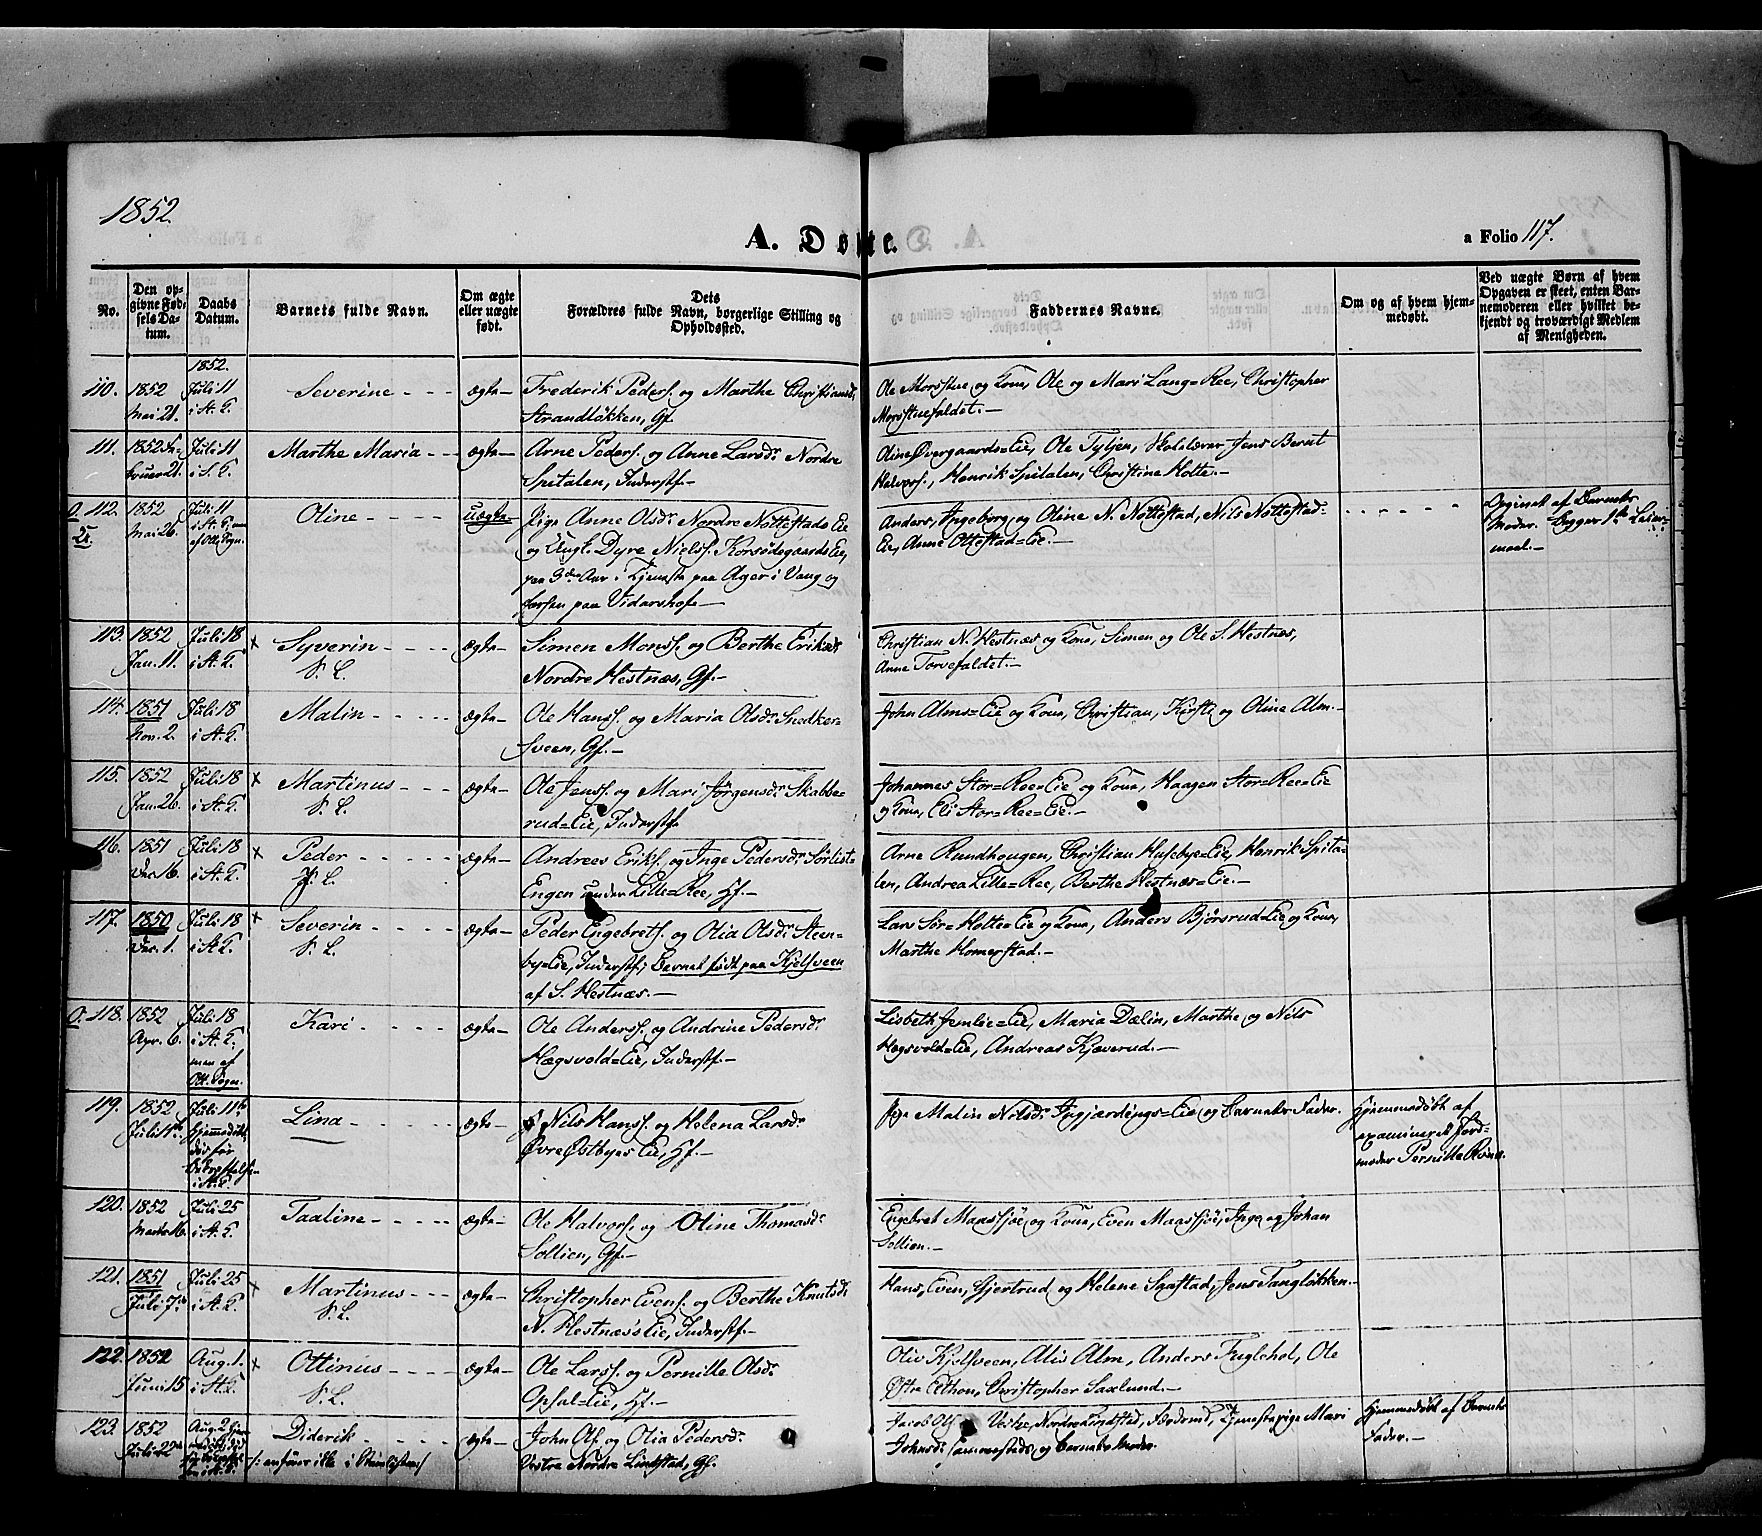 1852.
A. Døbte.
a Folio 117.
No.
Den opgivne Fødsels Datum.
Daabs Datum.
Barnets fulde Navn.
Om ægte eller uægte født.
Dets Forældres fulde Navn, borgerlige Stilling og Opholdssted.
Faddernes Navne.
Om og af hvem hjemmedøbt.
Ved uægte Børn af hvem Opgaven er skeet, enten Barnemoderen eller hvilket bekjendt og troværdigt Medlem af Menigheden.
1852.
110. 1852 Mai 21. Juli 11 i St. K. Severine - - - ægte- Frederik Peders. og Marthe Christiansd.
Strandløkken, Gf.
Ole Morstue og Kone, Ole og Mari Lang=Ree, Christopher
Morstuefaldet.-
111. 1852 Februar 21. Juli 11 i S. K. Marthe Maria - - ægte- Arne Peders. og Anne Larsdr. Nordre
Spitalen, Inderstf.-
Oline Øvergaards=Eie, Ole Tyljen, Skolelærer Jens Berat
Halvors., Henrik Spitalen, Christine Hotte.-
O. 112. 1852 Mai 26. Juli 11 i St. K. men af Ott. Sogn. Oline - - - - uægte- Pige Anne Olsdr. Nordre Nøttestads Eie
og Ungk. Dyre Niels. Korsødegaards Eie,
paa 3die Aar i Tjeneste paa Ager i Vang og
forhen paa Vidarshof.-
Anders, Ingeborg og Oline N. Nøttestad, Nils Nøttestad=
Eie, Anne Ottestad=Eie.-
Opgivet af Barnets
Moder. Begges 1ste Leiermaal.-
113. 1852 Jan. 11. Juli 18 i St. K. x Syverin - - - - ægte- Simen Mons. og Berthe Eriksdr.
S. L. Nordre Hestnæs, Gf.-
Christian N. Hestnæs og Kone, Simen og Ole S. Hestnæs,
Anne Torvefaldet.-
114. 1851 Nov. 2. Juli 18 i St. K. Malin - - - - ægte- Ole Hans. og Maria Olsdr. Snedker-
sveen, Gf.-
John Alms=Eie og Kone, Christian, Kirsti og Oline Alm.-
115. 1852 Jan. 26. Juli 18 i St. K. x Martinus - - - ægte- Ole Jens. og Mari Jørgensdr. Skabbe-
S. L. rud=Eie, Inderstf.
Johannes Stor=Ree=Eie og Kone, Haagen Stor=Ree=Eie
og Kone, Eli Stor=Ree=Eie.-
116. 1851 Dec. 16. Juli 18 i St. K. x Peder - - - - ægte- Andreas Eriks. og Inge Pedersdr. Sørlist-
S. L. Engen under Lille=Ree, Hf.-
Arne Rundhougen, Christian Husebye=Eie, Henrik Spita-
len, Andrea Lille=Ree, Berthe Hestnæs=Eie.-
117. 1850 Dec. 1. Juli 18 i St. K. x Severin - - - ægte- Peder Engebrets. og Olia Olsdr. Steen-
S. L. by=Eie, Inderstf.; Barnet født paa Kjelsveen
af S. Hestnæs.-
Lars Sør=Hotte=Eie og Kone, Anders Bjørsrud=Eie og Kone,
Marthe Homerstad.-
O. 118. 1852 Apr. 6. Juli 18 i St. K. men af Ott. Sogn. Kari - - - - ægte- Ole Anders. og Andrine Pedersdr.
Hægsvold=Eie, Inderstf.-
Lisbeth Jemlie=Eie, Maria Dælin, Marthe og Nils
Hægsvold=Eie, Andreas Kjæverud.-
119. 1852 Juli 1ste. Juli 11te Hjemmedøbt, død før Bekræftelsen i St. K. Lina - - - - ægte- Nils Hans. og Helena Larsdr.
Øvre Østbyes Eie, Hf.-
Pige Malin Nilsdr. Ingjærdings=Eie og Barnets Fader.
Hjemmedøbt af
examineret Jord-
moder Pernille
120. 1852 Marts 16. Juli 25 i St. K. Taaline - - - - ægte- Ole Halvors. og Oline Thomasdr.
Sollien, Gf.-
Engebret Maassjøe og Kone, Even Maassjøe, Inge og Johan
Sollien.-
121. 1851 Juli 7de Juli 25 i St. K. x Martinus - - - ægte- Christopher Evens. og Berthe Knutsdr.
S. L. N. Hestnæs's Eie, Inderstf.-
Hans, Even, Gjertrud og Helene Saastad, Jens Tangløkken.-
122. 1852 Juni 15 Aug. 1. i St. K. x Ottinius - - - ægte- Ole Lars. og Pernille Olsdr.
S. L. Opsal=Eie, Hf.-
Oliv Kjelsveen, Alis Alm, Anders Fuglehol, Ole
Østre Athon, Christopher Saxlund.-
123. 1852 Juli 22de Aug. 2 Hjemmedøbt, død før Bekræftelsen i St. K. Diderik - - - ægte- John Ols. og Olia Pedersdr.
/: anfører ikke i Skemalisten :/ Vestre Nordre Lindstad, Gf.
Jacob Ols. Vestre Nordre Lindstad, Tjenestepige Mari
Johnsdr. Sammestads, og Barnets Moder.
Hjemmedøbt af Barnets
Fader.-